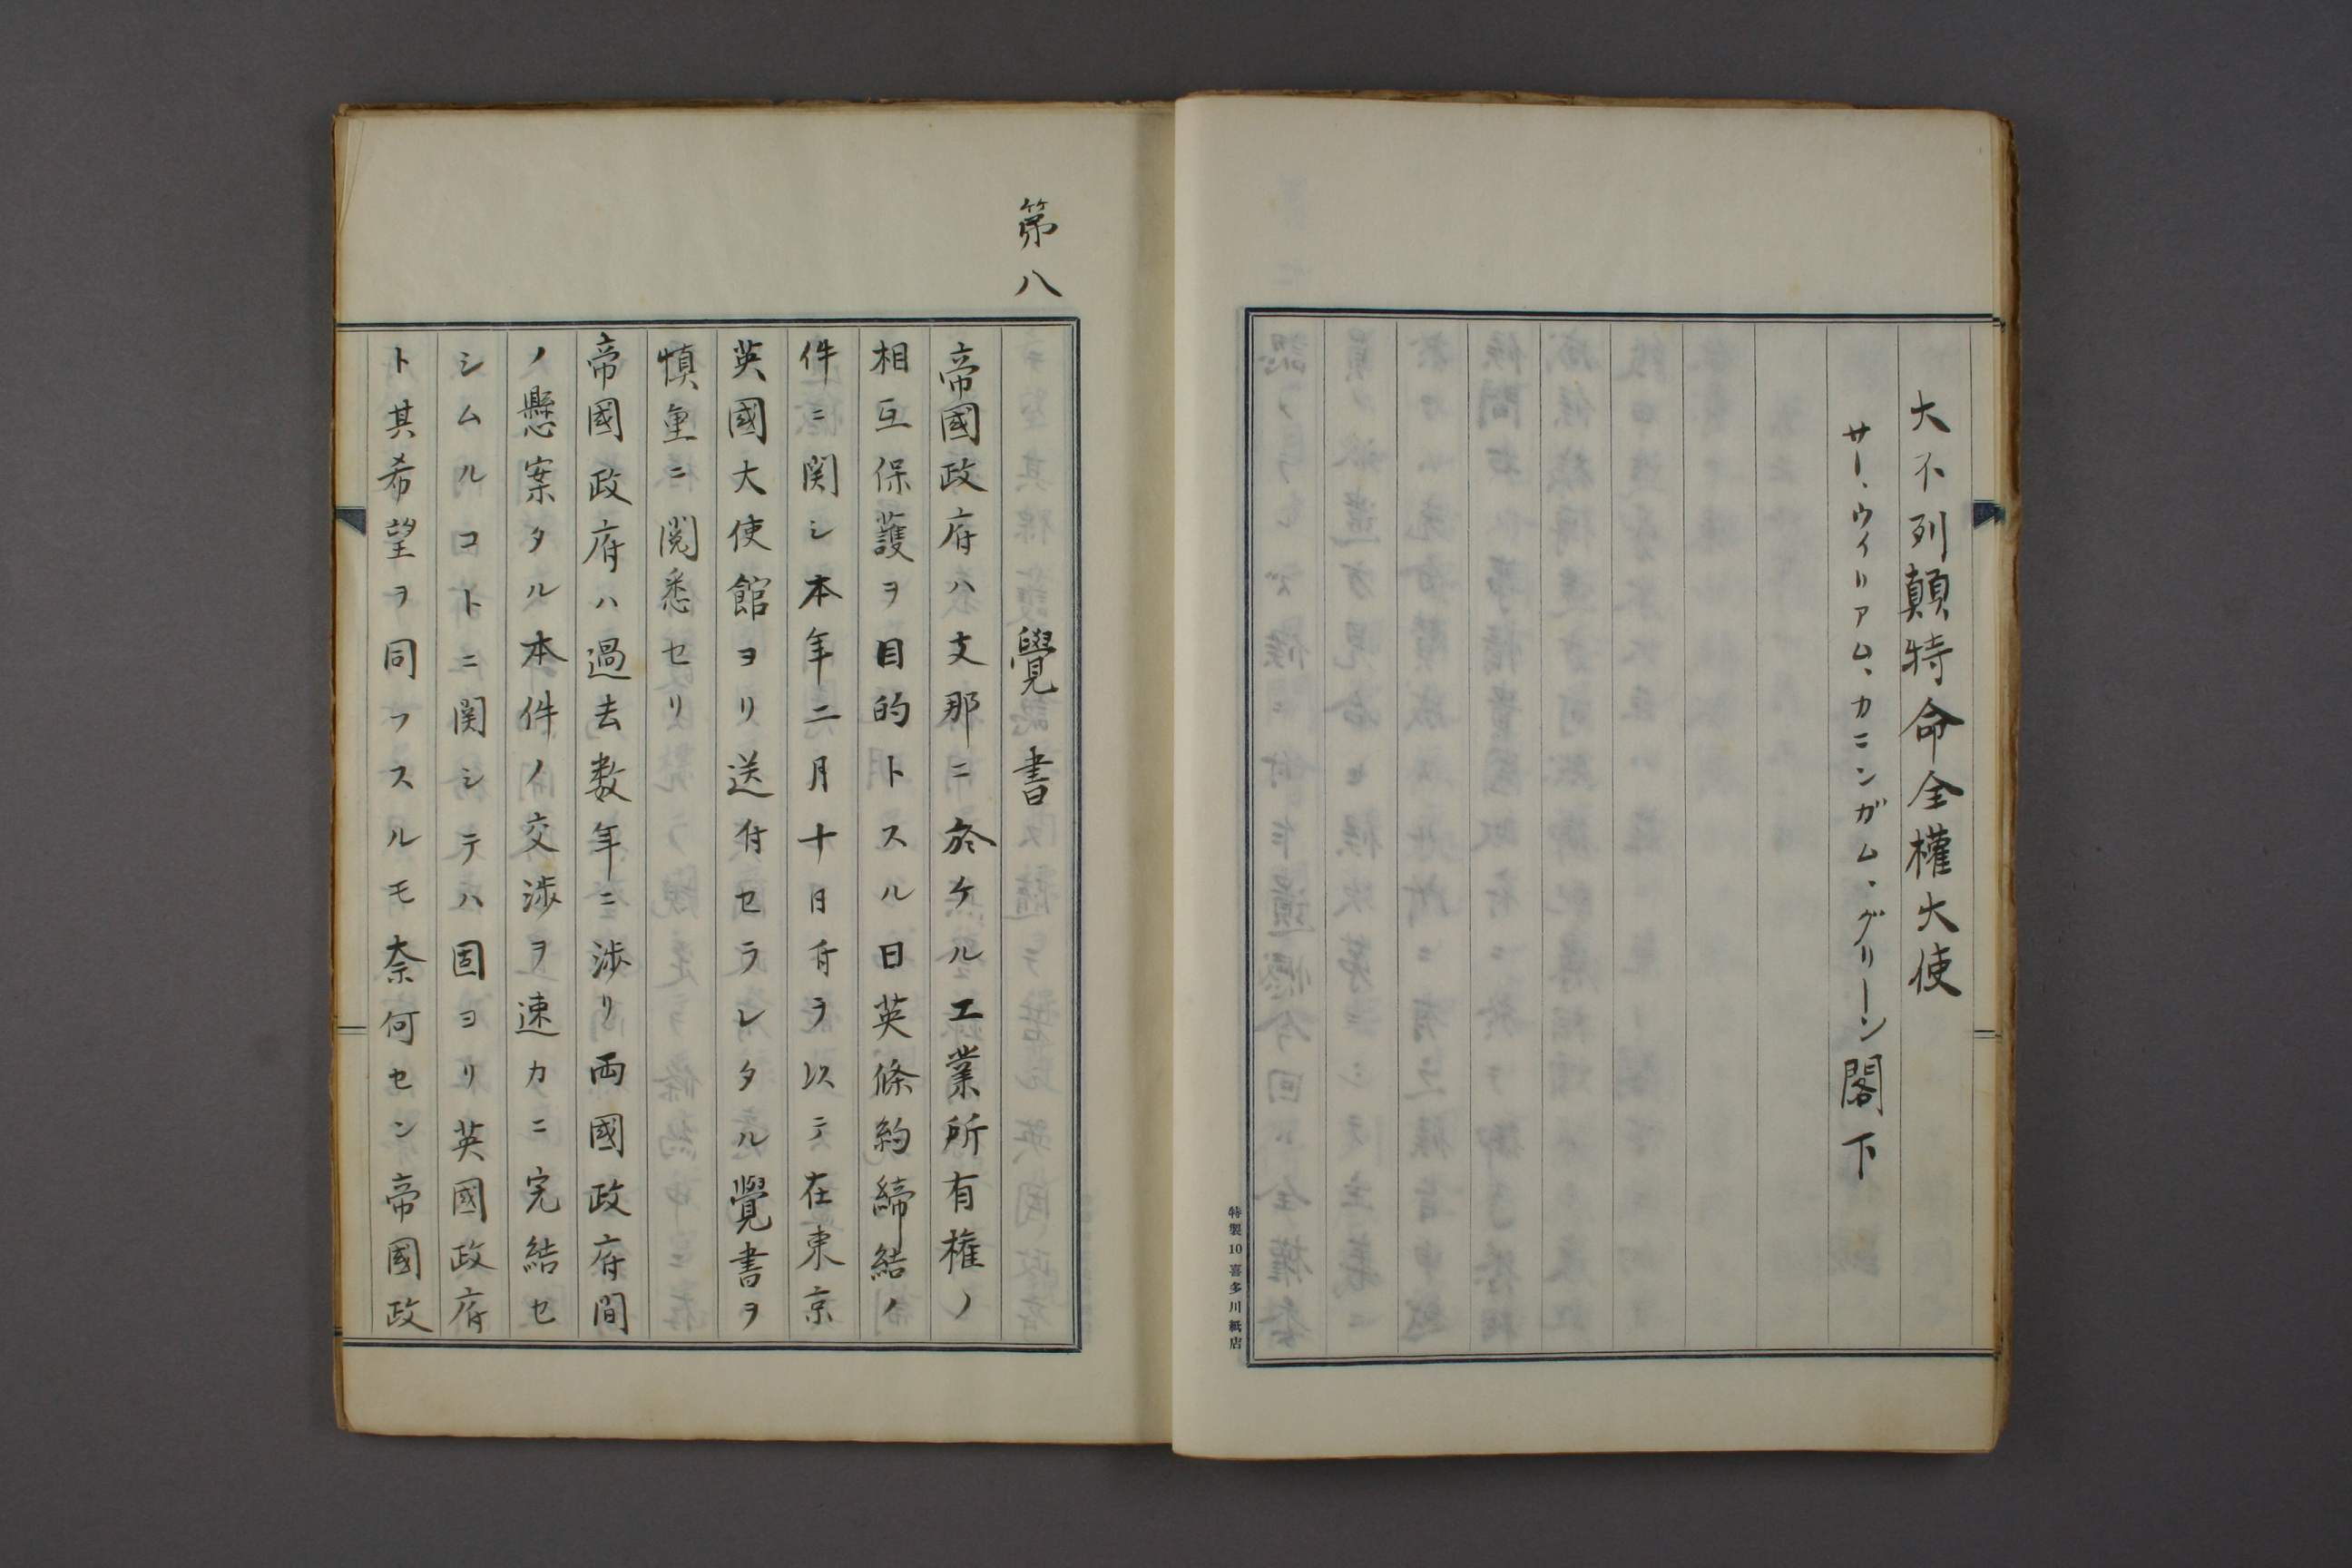 大不列顛特命全權大使
サー、ウィリアム、カニンガム、グリーン閣下
特製10喜多川紙店
第八
覺書
帝國政府ハ支那ニ於ケル工業所有権ノ
相互保護ヲ目的トスル日英條約締結ノ
件ニ関シ本年二月十日付ヲ以テ在東京
英國大使館ヨリ送付セラレタル覺書ヲ
慎重ニ閲悉セリ
帝國政府ハ過去数年ニ渉リ両國政府間
ノ懸案タル本件ノ交渉ヲ速カニ完結セ
シムルコトニ関シテハ固ヨリ英國政府
ト其希望ヲ同フスルモ奈何セン帝國政